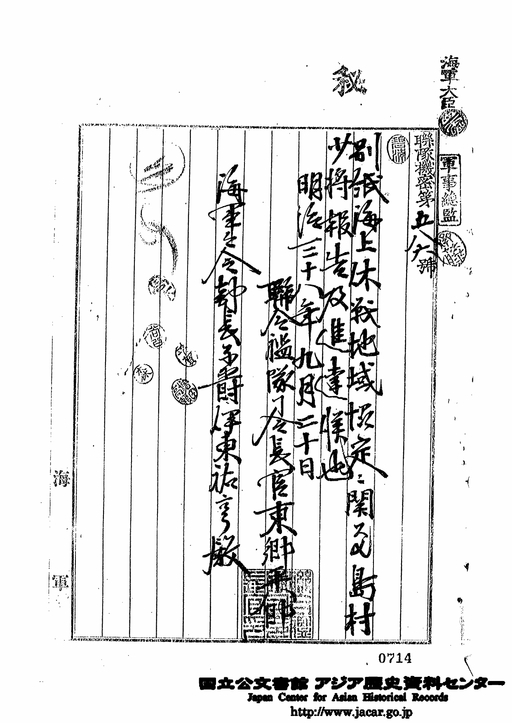 秘
海軍大臣
軍事總監
聯隊機密第五八六號
別紙海上休戰地域協定ニ關スル島村
少將報告及進達候也
明治三十八年九月二十日
聯合艦隊司令長官東郷平八郎
海軍軍令部長子爵伊東祐亨殿
海軍
0714
国立公文書館 アジア歴史資料センター
Japan Center for Asian Historical Records
http://www.jacar.go.jp